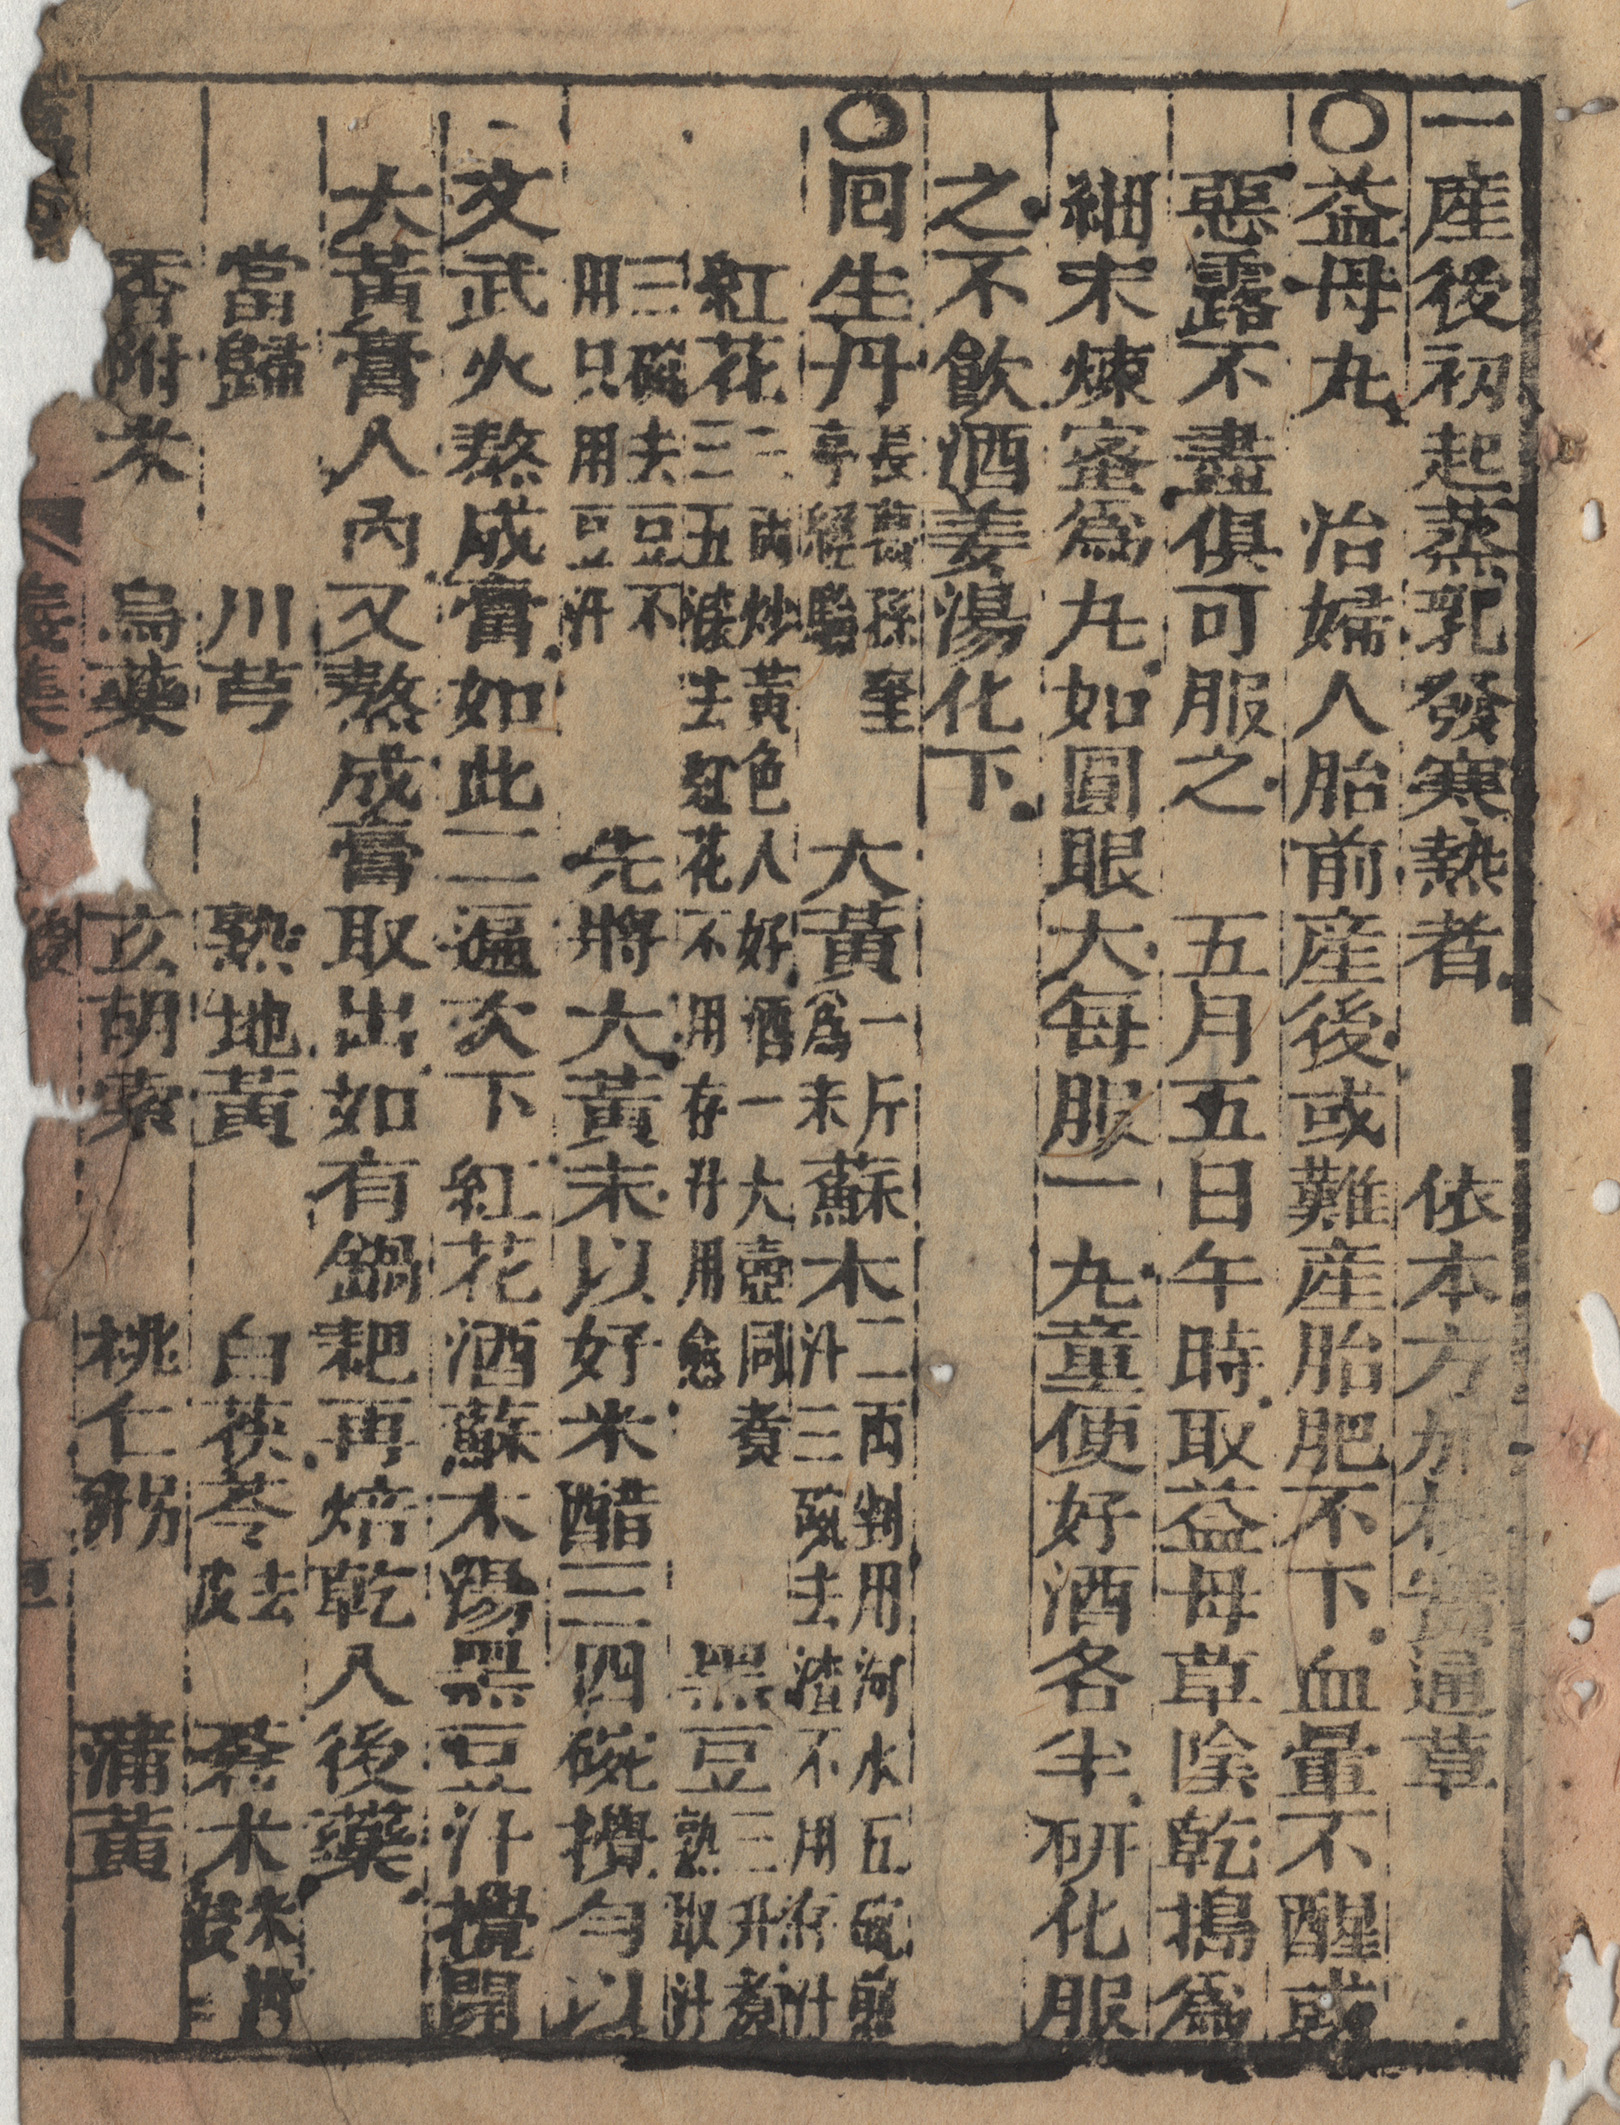 一產後初起蒸乳發寒熱者 依本方加 通草
〇益母丸 治婦人胎前產後或難產胎肥不下血暈不醒或
惡露不盡俱可服之 五月五日午時取益母草陰乾搗爲
細末煉蜜爲丸如圓眼大每服一丸童便好酒各半研化服
之不飲酒姜湯化下
〇囘生丹 長葛孫奎亭經驗 大黃一斤爲末 蘇木二兩判用河水五碗煎汁三碗去渣不用存汁
紅花二兩炒黃色入好酒一大壺同煮三五滾去紅花不用存汁用 黑豆三升煮熟取汁
三碗去豆不用只用豆汁 先將大黃末以好米醋三四碗攪勻以
文武火熬成膏如此二遍次下紅花酒蘇木湯黑豆汁攪開
大黃膏入內又熬成膏取出如有鍋耙再焙乾入後藥
當歸 川芎 熟地黃 白茯苓去皮 蒼木米泔
香附米 烏藥 玄胡索 桃仁 蒲黃